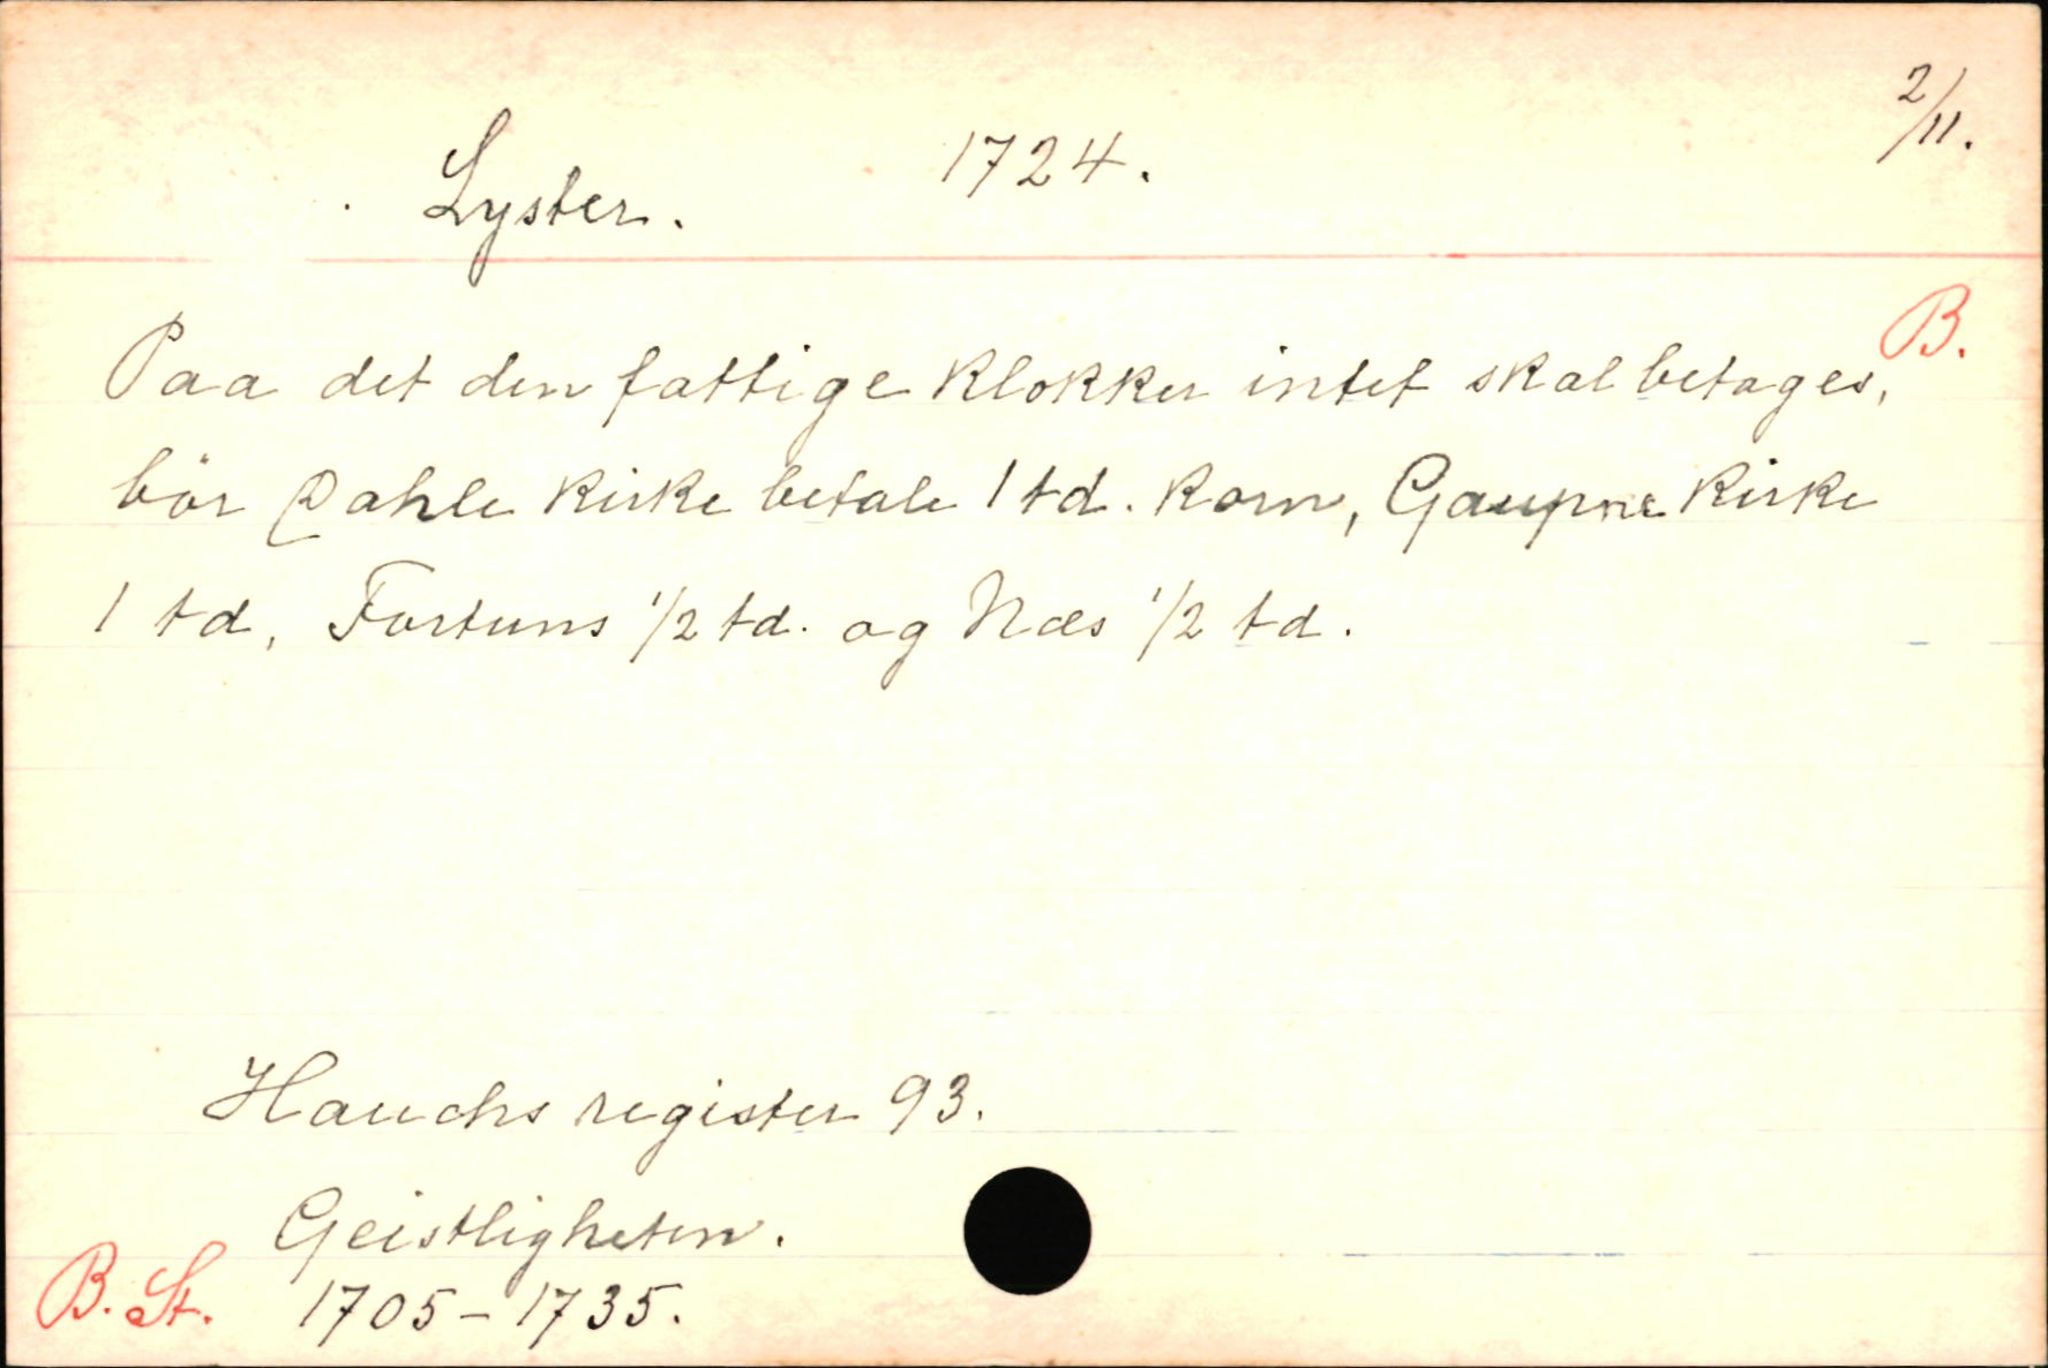 2/11.
Lyster. 1724.
B.
Paa det den fattige klokker intet skal betages,
bör Dahle kirke betale 1 td. korn, Gaupne kirke
1 td, Fortuns 1/2 td. og Næs 1/2 td.
Hauchs register 93.
Geistligheten.
B. St. 1705-1735.